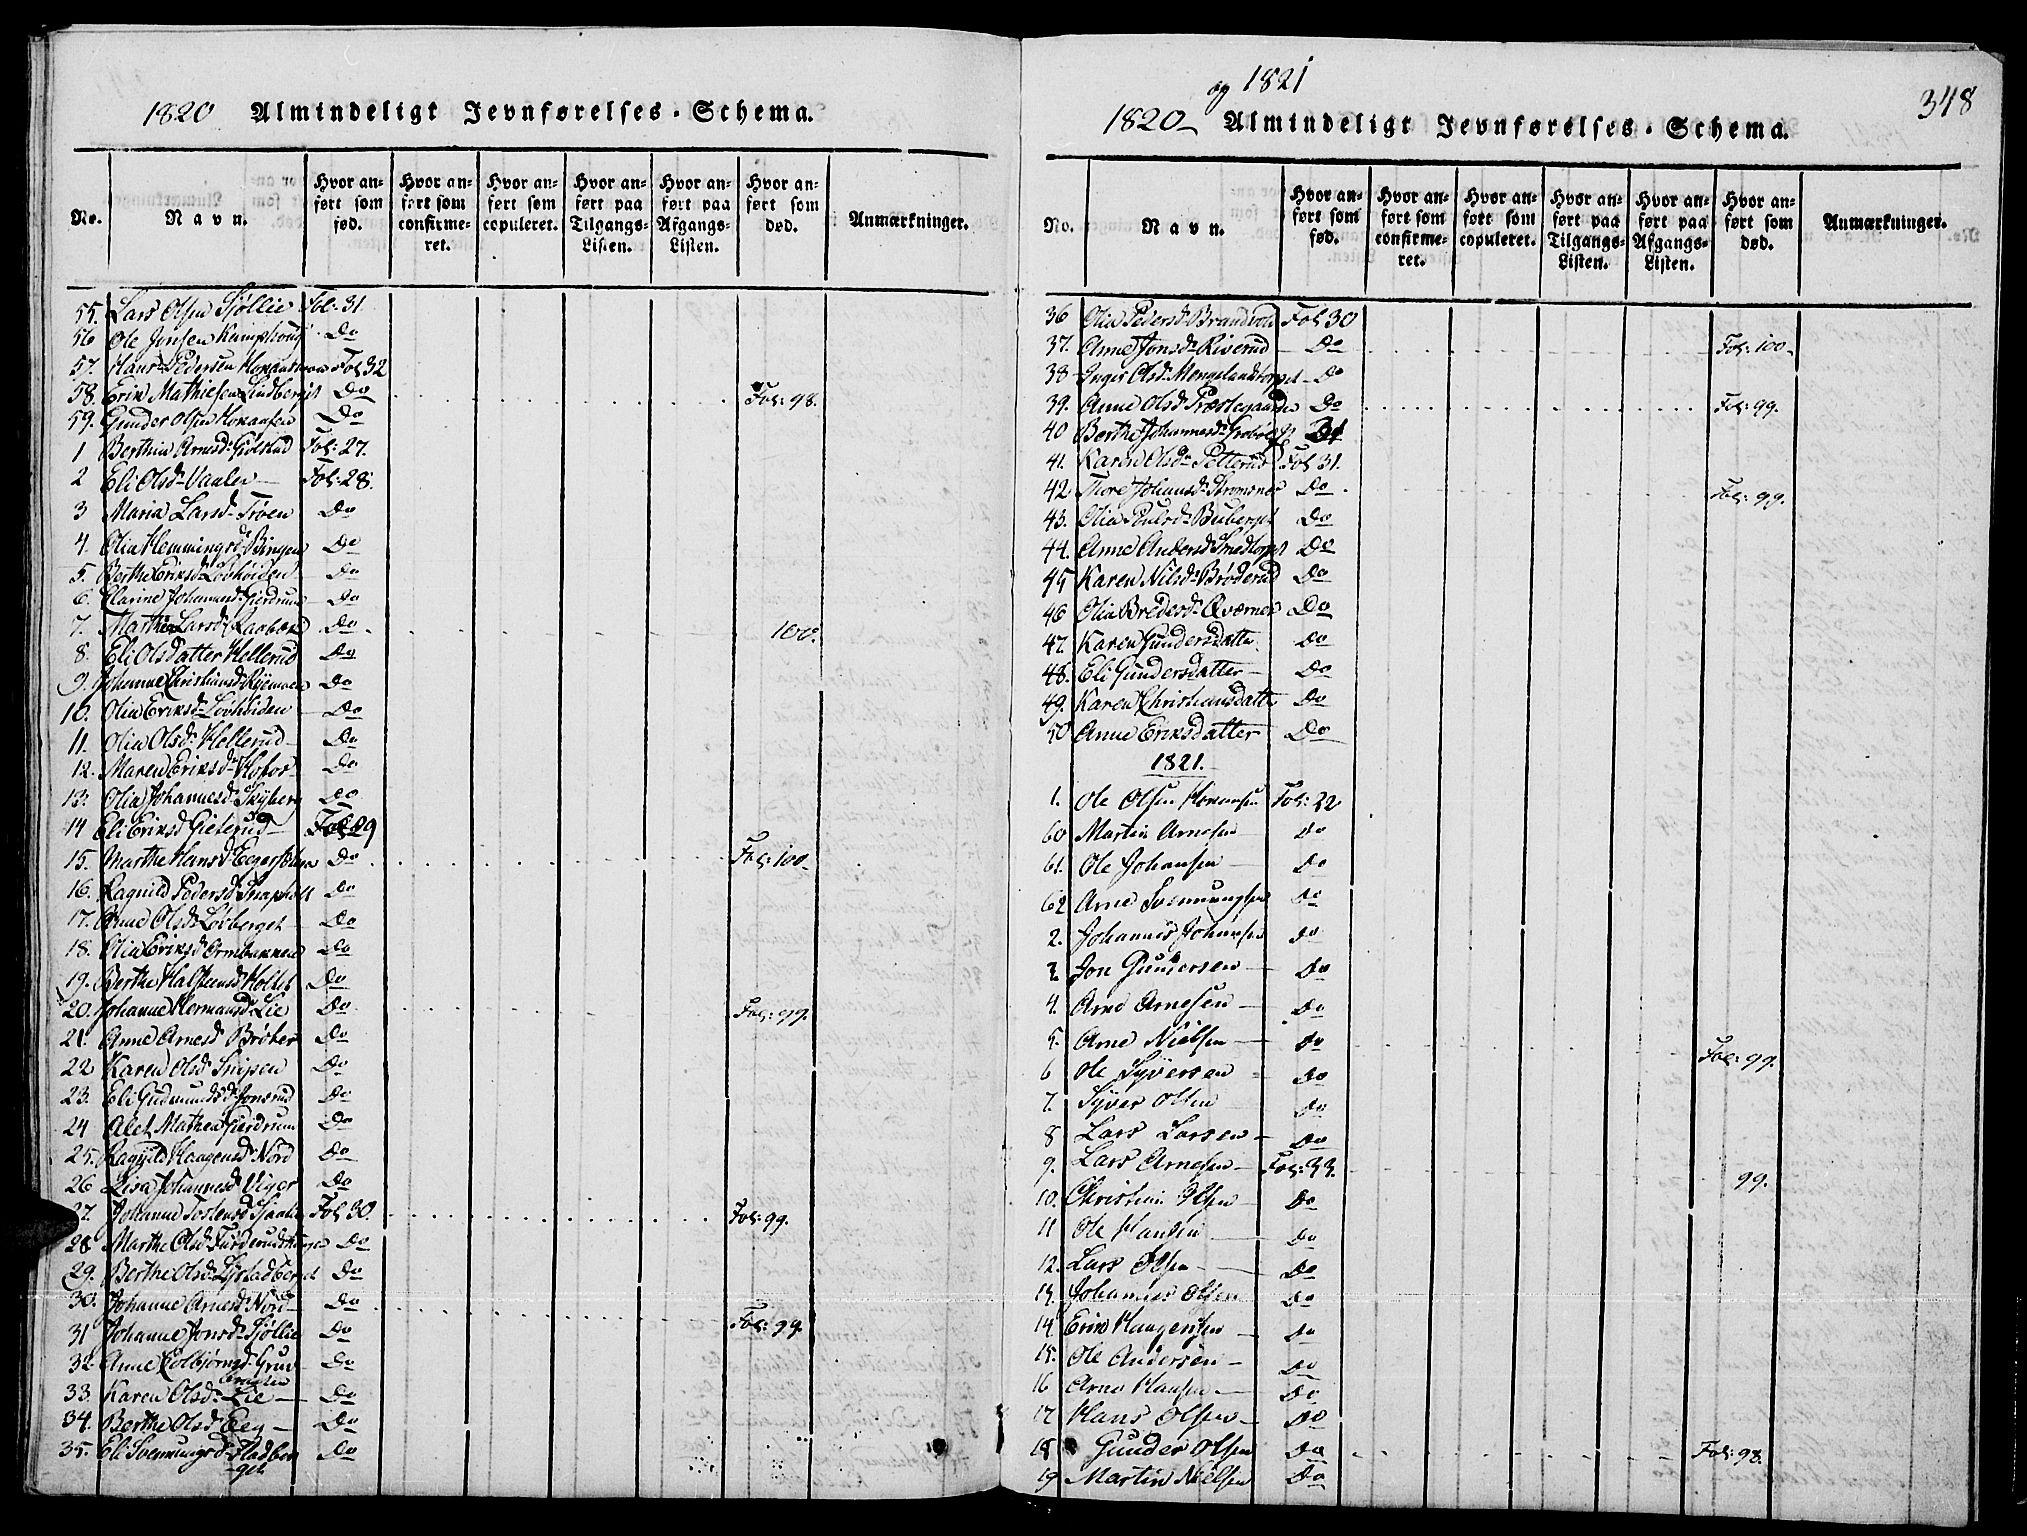 1820 Almindeligt Jevnførelses-Schema.
No.
Navn.
Hvor anført som fød.
Hvor anført som confirmeret.
Hvor anført som copuleret.
Hvor anført paa Tilgangs-Listen.
Hvor anført paa Afgangs-Listen.
Hvor anført som død.
Anmærkninger.
55. Lars Olsen Sjøllie Fol. 31
56 Ole Jonsen Do
57. Hans Pedersen Fol 32
58. Erik Mathiesen Lindberget Do Fol: 98.
59. Gunder Olsen Do
1 Berthia Arnesd. Gjølstad Fol: 27.
2 Eli Olsdr Vaaler Fol: 28.
3 Maria Larsd. Trøen Do
4. Olia Hemmingsd. Bingen Do
5. Berthe Eriksd. Løvhaiden Do
6. Clarine Johannesd. Gierdrum Do
7. Marthe Larsd. Do 100.
8. Eli Olsdatter Hellerud Do
9. Johanne Christiansd. Do
10. Olia Eriksd. Løvhaiden Do
11. Olia Olsd. Hellerud Do
12. Maren Eriksd. Hofos Do
13. Olia Johannesd. Skyberg Do
14 Eli Eriksd. Fol 29
15. Marthe Hansd. Do Fol: 100
16. Ragnild Pedersd. Do
17. Anne Olsd. Løvberget Do
18. Olia Eriksd. Do
19. Berthe Halsteensd. Do
20. Johanne Hermansd. Lie Do Fol: 99.
21. Anne Arnesd. Do
22 Karen Olsd. Do
23. Eli Gudmundsd. Jonsrud Do
24 Alet Mathea Gierdrum Do
25. Ragnild Haagensd. Nord Do
26 Lisa Johannesd. Do
27. Johanne Fol 30. Fol: 99.
28 Marthe Olsd. Do
29. Berthe Olsd. Do
30. Johanne Arnesd. Nord Do
31 Johanne Jonsd. Sjøllie Do Fol: 99.
32. Anne Colbjørnsd. Do
33. Karen Olsd. Lie Do
34. Berthe Olsd. Eeg Do
35. Eli Svenningsd. Do
og 1821
1820 Almindeligt Jevnførelses-Schema.
348
No.
Navn.
Hvor anført som fød.
Hvor anført som confirmeret.
Hvor anført som copuleret.
Hvor anført paa Tilgangs-Listen.
Hvor anført paa Afgangs-Listen.
Hvor anført som død.
Anmærkninger.
36 Olia Pedersd. Brandvold Fol 30
37. Anne Jonsd. Riverud Do Fol: 100
38 Inger Olsd. Do
39. Anne Olsd. Præstegaarden Do Fol: 99.
40 Berthe Johannesd. Do
41. Karen Olsd. Fol 31.
42. Thore Johansd. Strømsnes Do Fol: 99
43. Olia Do
44. Anne Andersd. Do
45 Karen Nilsd. Brøderud Do
46 Olia Bredesd. Qværnes Do
47. Karen Gundersdatter Do
48. Eli Gundersdatter Do
49. Karen Christiansdatter Do
50 Anne Eriksdatter Do
1821.
1. Ole Olsen Fol: 32
60 Martin Arnesen Do
61. Ole Johansen Do
62 Arne Svenningsen Do
2. Johannes Johansen Do
3. Jon Gundersen Do
4. Arne Arnesen Do
5. Arne Nielsen Do Fol: 99.
6 Ole Syversen Do
7. Syver Olsen Do
8 Lars Larsen Do
9. Lars Arnesen Fol: 33. 99.
10. Christian Olsen Do
11 Ole Hansen Do
12. Lars Olsen Do
13. Johannes Olsen Do
14. Erik Haagensen Do
15. Ole Andersen Do
16 Arne Hansen Do
17 Hans Olsen Do
18 Gunder Olsen Do Fol: 98.
19 Martin Nielsen Do